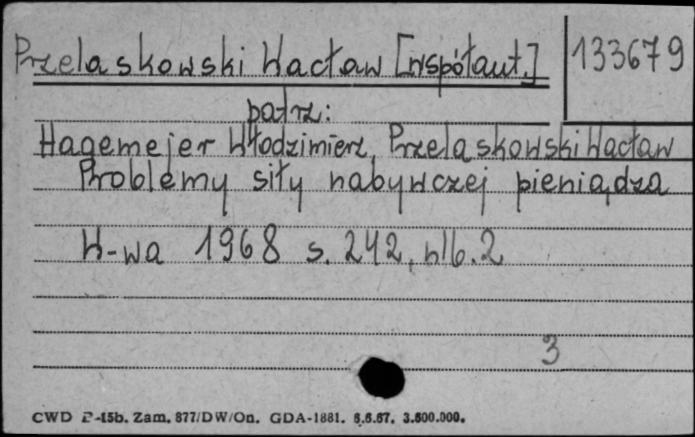 Przelaskowski Wacław [współaut.]
133679
patrz:
Hagemejer Włodzimierz, Przelaskowski Wacław
Problemy siły nabywczej pieniądza
W-wa 1968 s. 242, nlb. 2
3
CWD P-15b. Zam. 877/DW/On. GDA-1881. 6.6.67. 3.600.000.